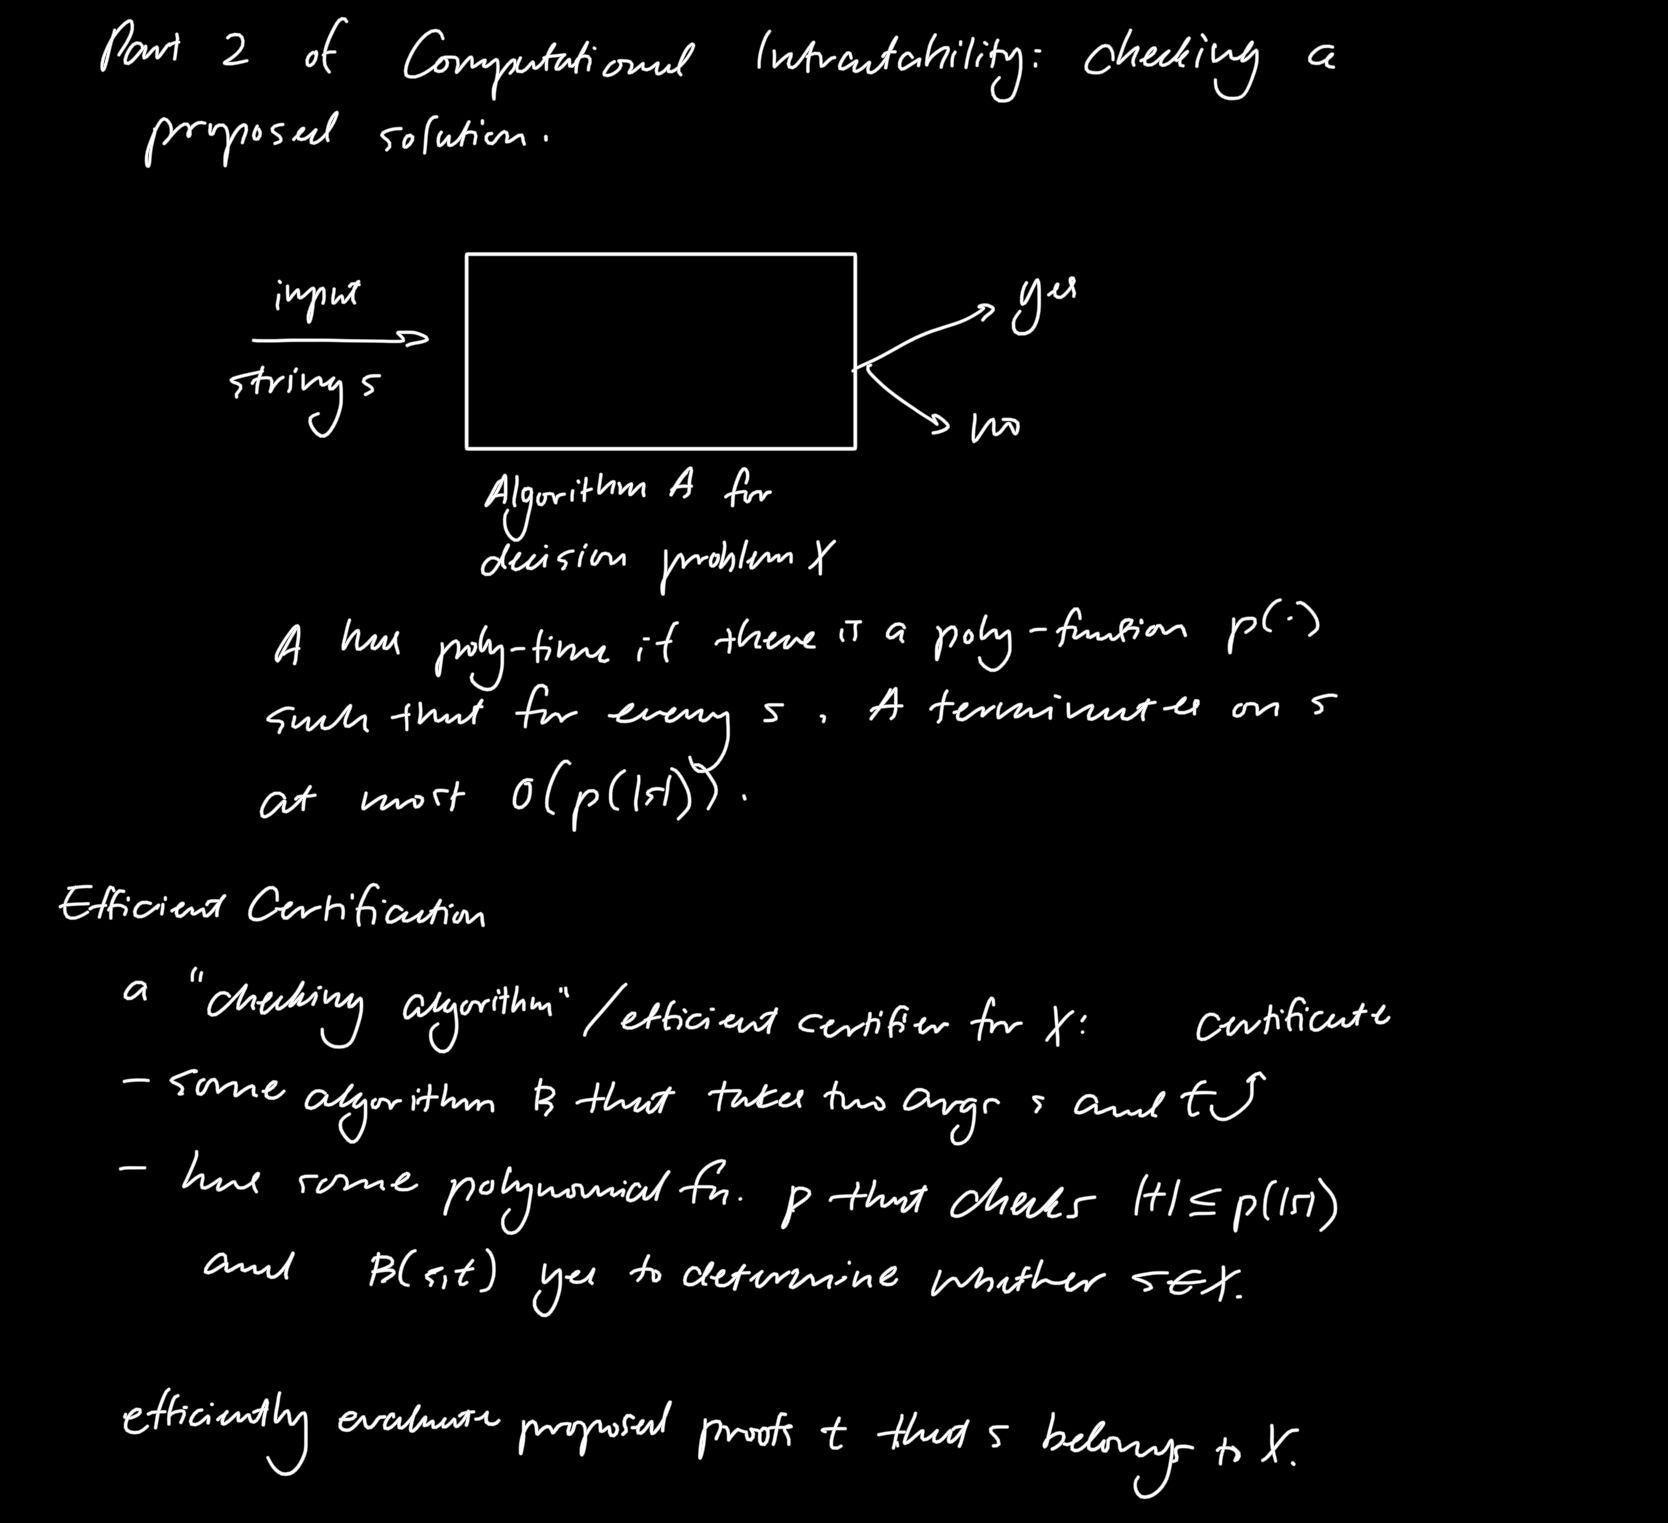 Part 2 of Computational Intractability: checking a
proposed solution.
input
string s
yes
no
Algorithm A for
decision problem X
A has poly-time if there is a poly-function p(·)
such that for every s, A terminates on s
at most O(p(|s|)).
Efficient Certification
a "checking algorithm" / efficient certifier for X:
certificate
- some algorithm B that takes two args s and t
- has some polynomial fn. p that checks |t| ≤ p(|s|)
and B(s,t) yes to determine whether s∈X.
efficiently evaluate proposed proofs t that s belongs to X.